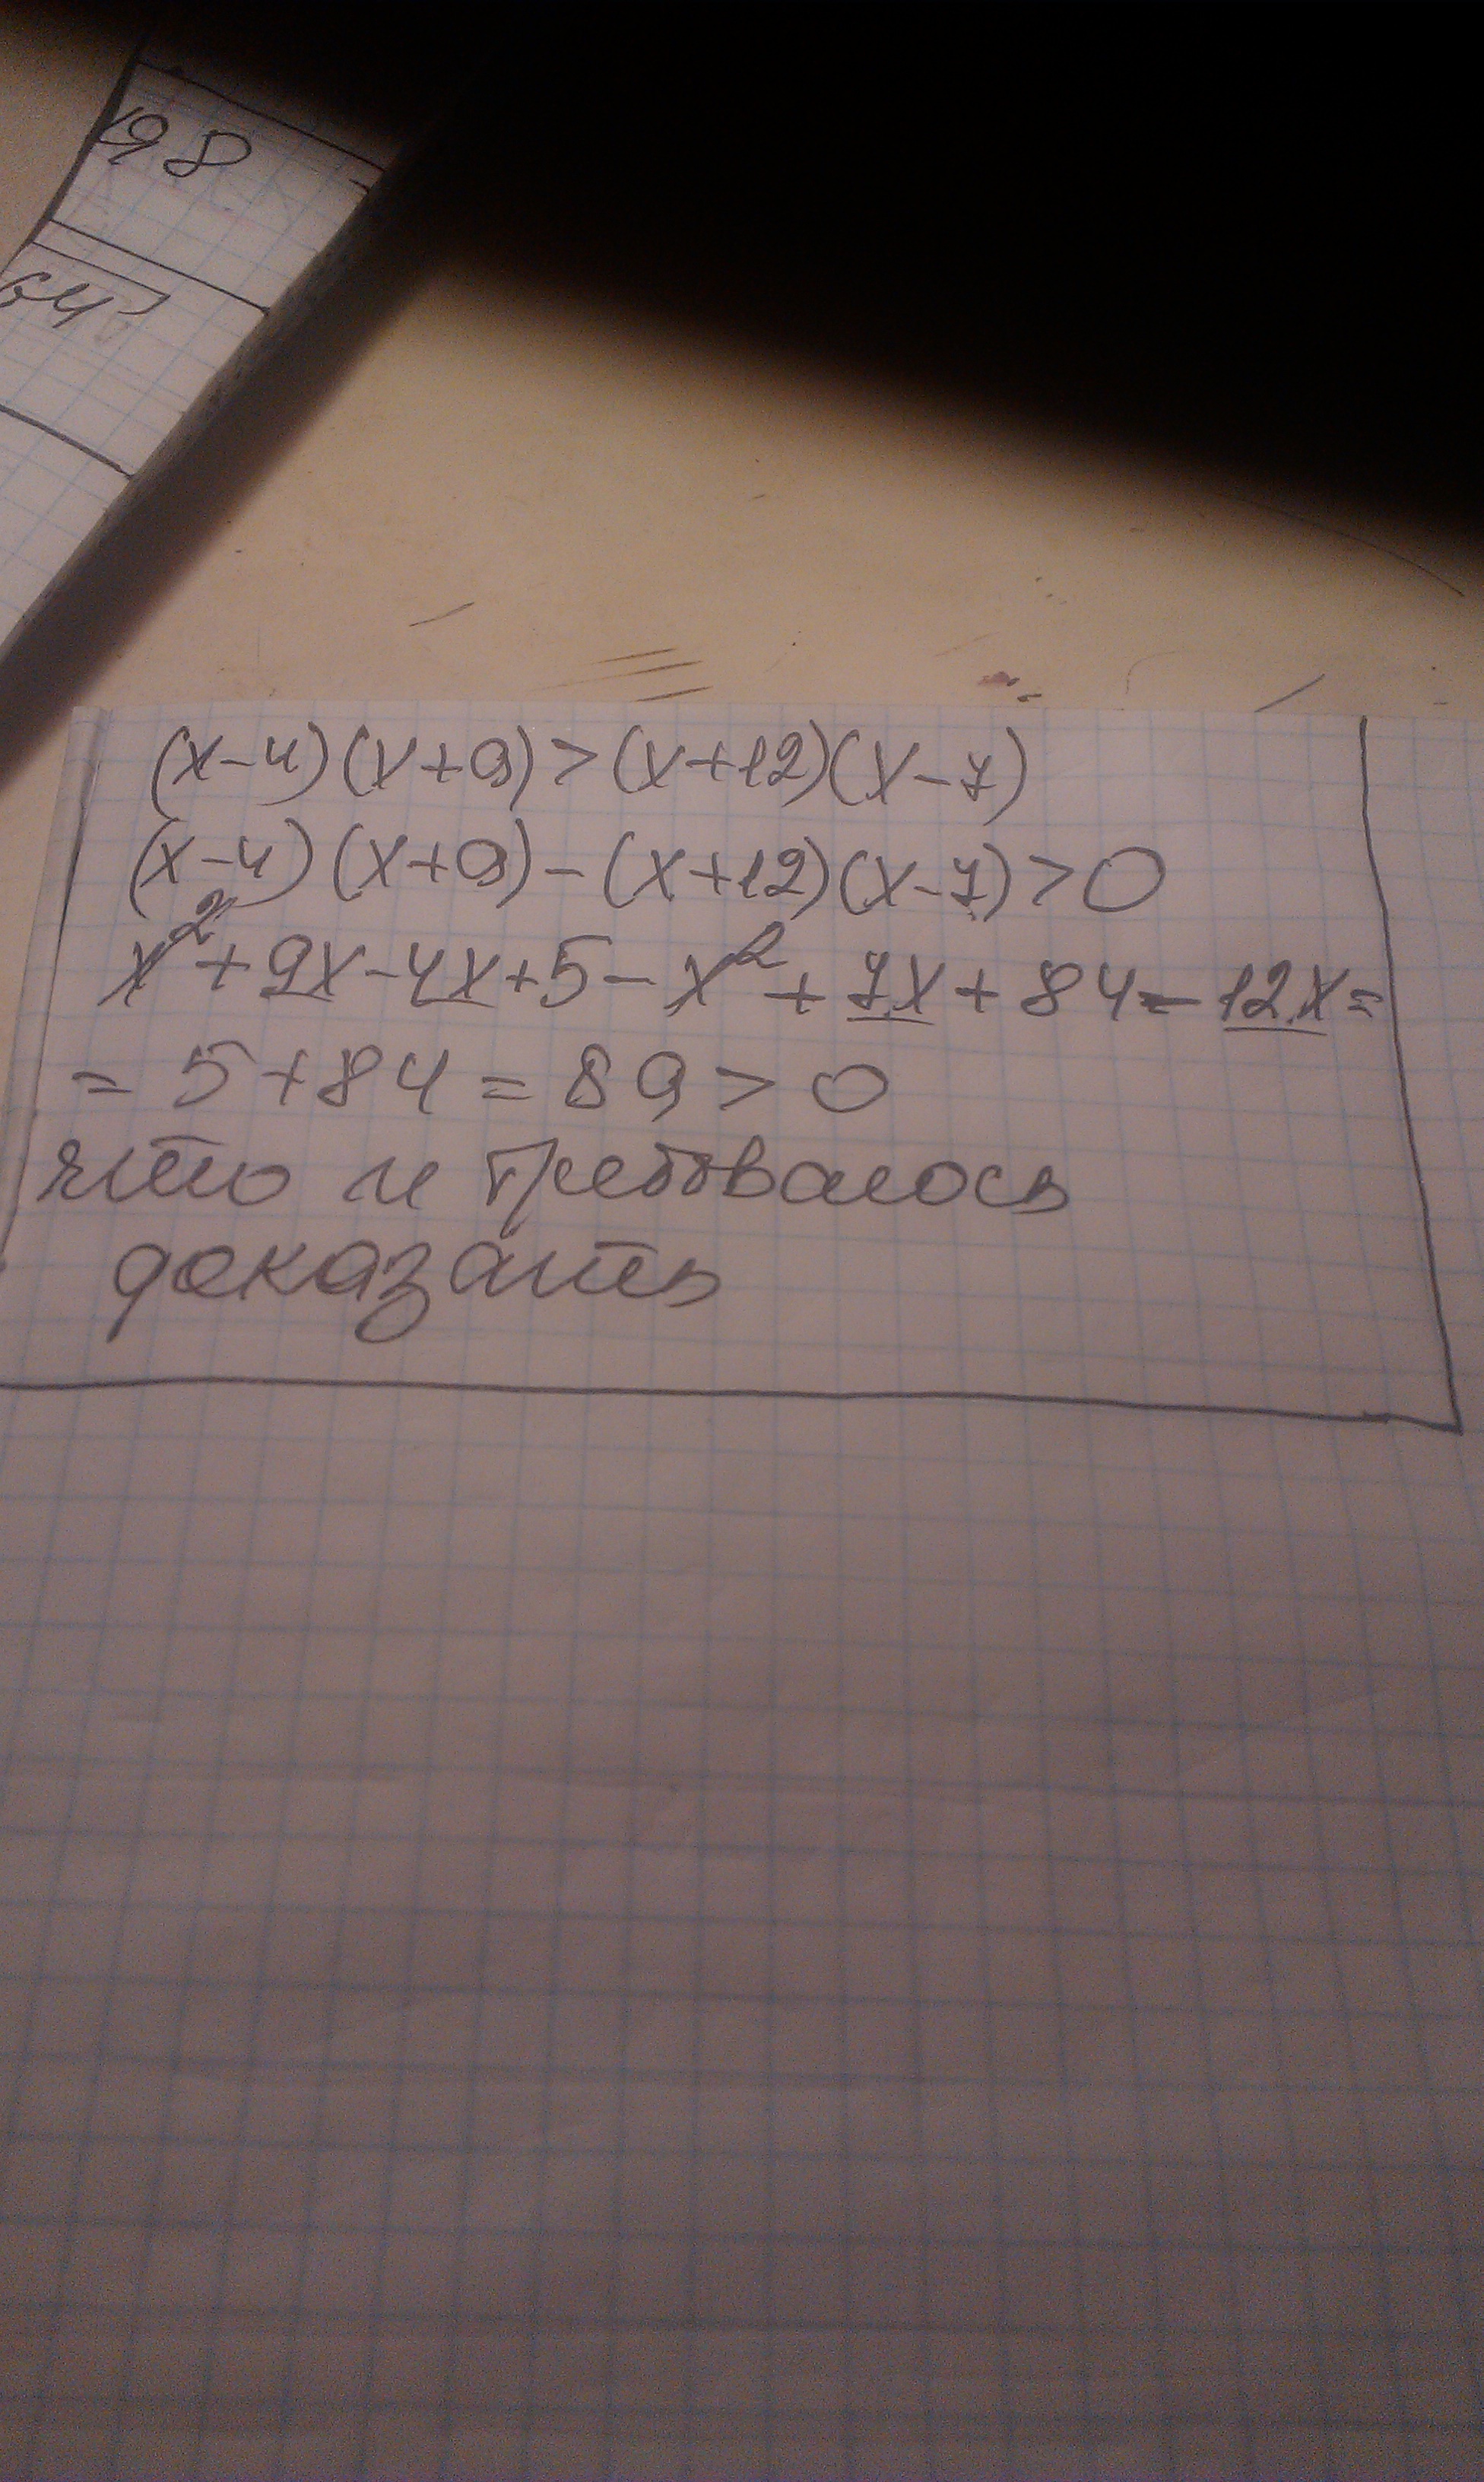 198
64
(x-4)(x+9)>(x+12)(x-7)
(x-4)(x+9)-(x+12)(x-7)>0
x²+9x-4x+5-x²+7x+84-12x=
=5+84=89>0
что и требовалось
доказать